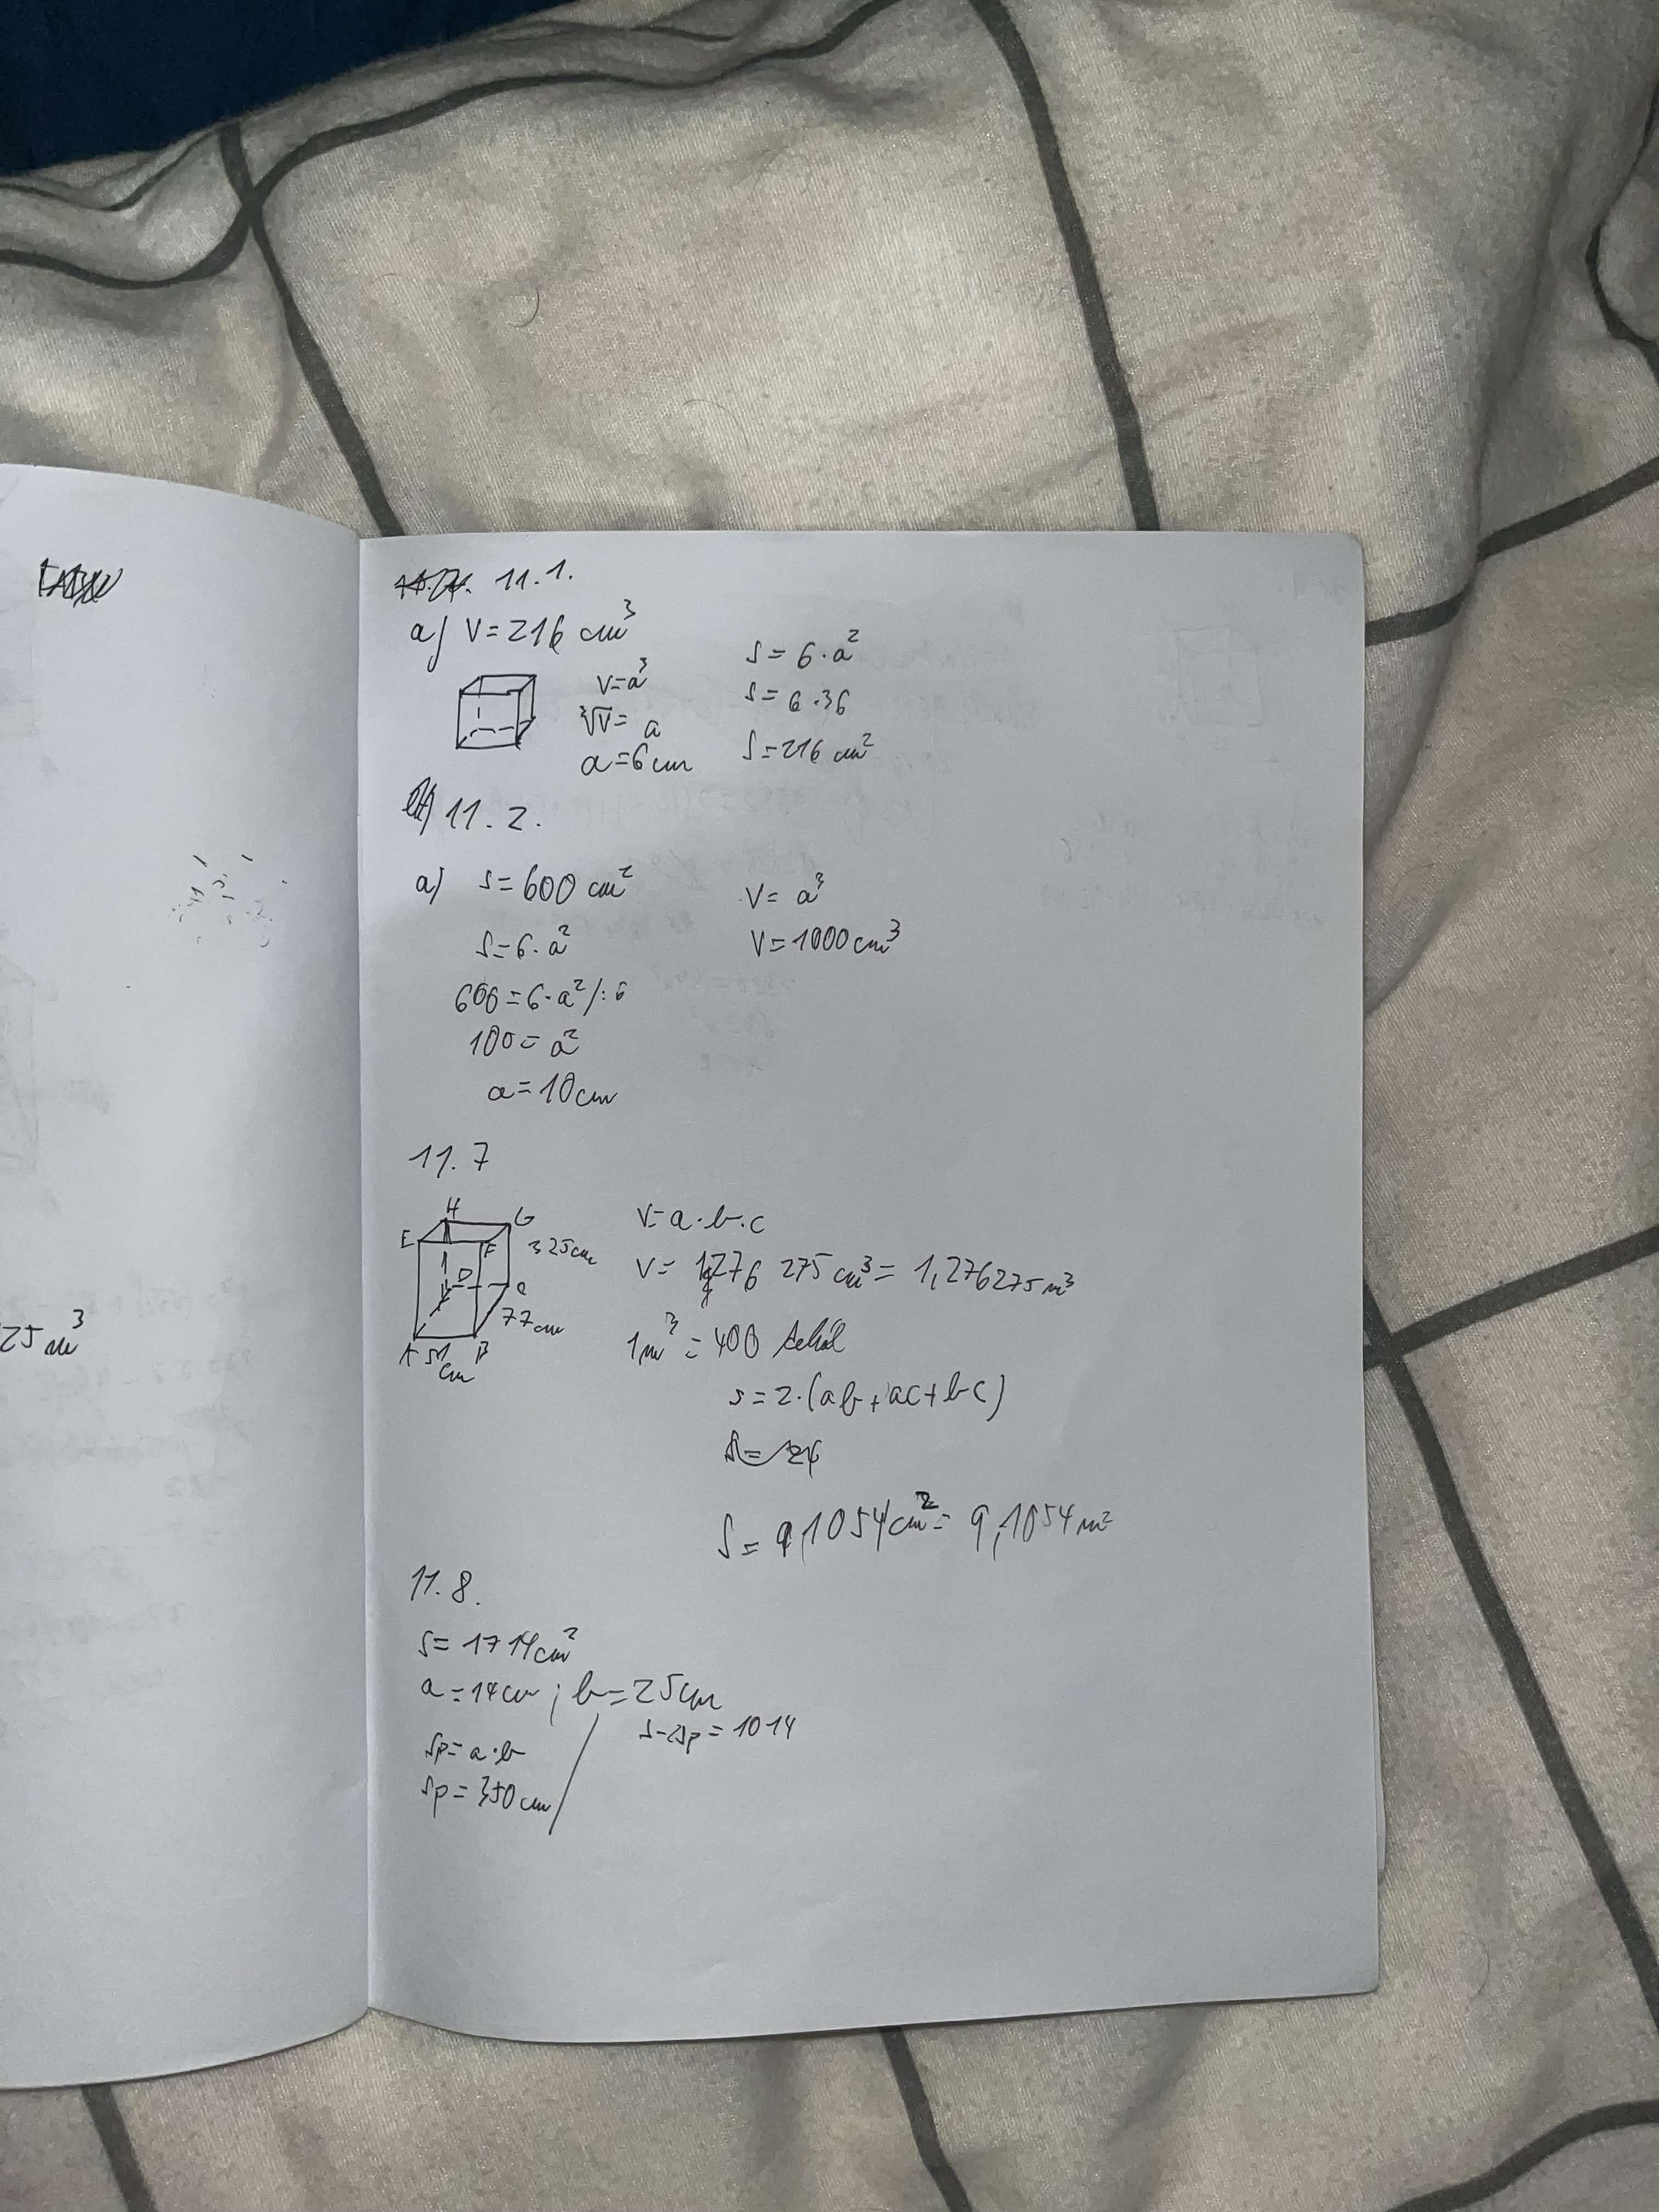 25 m³
11.1.
a) V=216 cm³
V=a³
³√V= a
a=6cm
S= 6·a²
S= 6·36
S=216 cm²
11.2.
a) S=600 cm²
S=6·a²
600=6·a²/:6
100= a²
a=10cm
V= a³
V=1000cm³
11.7
H
G
E
F
325cm
D
C
77cm
A 51 B
cm
V=a·b·c
V= 1276 275cm³= 1,276275m³
1m³= 400
S=2·(ab+ac+bc)
S=
S= 91054cm²= 9,1054m²
11.8.
S=1714cm²
a=14cm; b=25cm
Sp=a·b
Sp=350cm
S-2Sp=1014